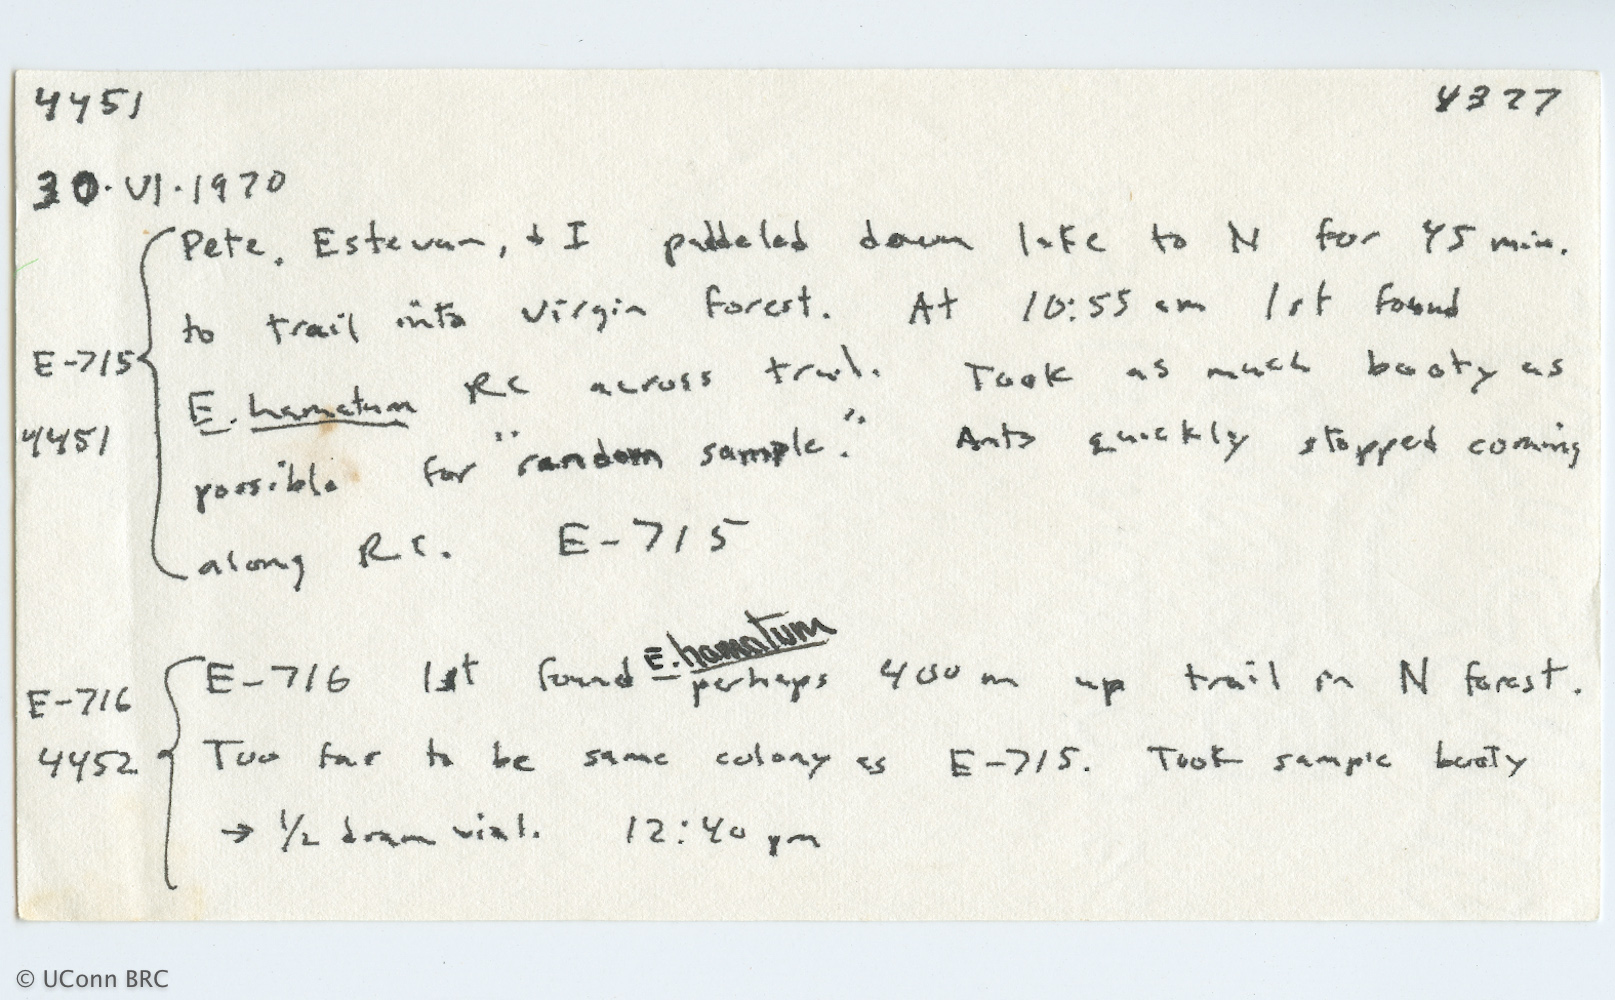 4451 4377
30.VI.1970
Pete, Estevan, & I paddeled down lake to N for 45 min.
to trail into virgin forest. At 10:55 am 1st found
E-715 E. hamatum RC across trail. Took as much booty as
4451 possible for "random sample". Ants quickly stopped coming
along RC. E-715
E-716 1st found E. hamatum perhaps 400 m up trail in N forest.
E-716
4452 Too far to be same colony as E-715. Took sample booty
→ 1/2 dram vial. 12:40 pm
© UConn BRC